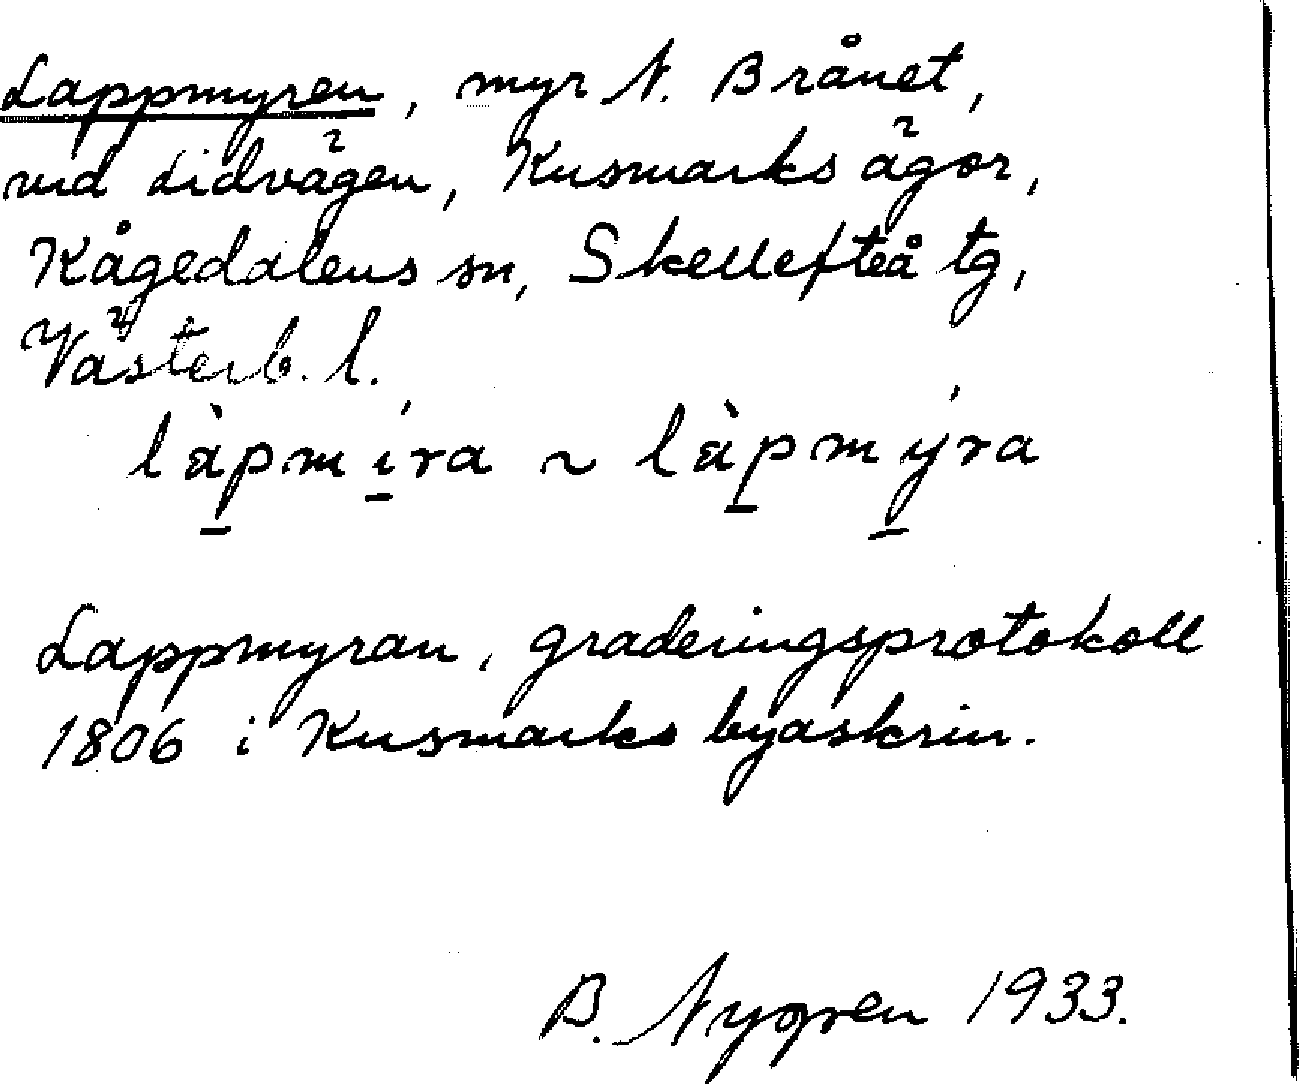 Lappmyren, myr N. Brånet,
vid Lidvägen, Kusmarks ägor,
Kågedalens sn, Skellefteå tg,
Västerb. l.
làpmíra ~ làpmýra
Lappmyran, graderingsprotokoll
1806 i Kusmarks byaskrin.
B. Nygren 1933.